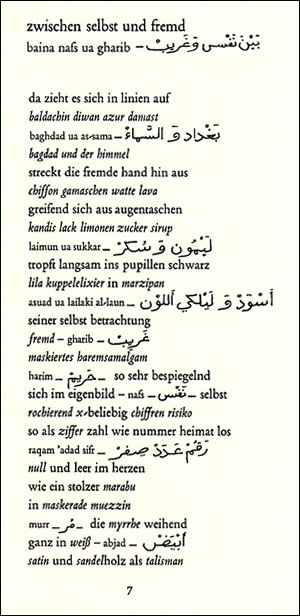 zwischen selbst und fremd
baina nafs ua gharib – بَيْنَ نَفْسٍ وَغَرِيبْ
da zieht es sich in linien auf
baldachin diwan azur damast
baghdad ua as-sama – بَغْدَاد وَ السَّمَاءْ
bagdad und der himmel
streckt die fremde hand hin aus
chiffon gamaschen watte lava
greifend sich aus augentaschen
kandis lack limonen zucker sirup
laimun ua sukkar – لَيْمُون وَ سُكَّرْ
tropft langsam ins pupillen schwarz
lila kuppelelixier in marzipan
asuad ua lailaki al-laun – أَسْوَدْ وَ لَيْلَكِي أَللَّوْن
seiner selbst betrachtung
fremd – gharib – غَرِيبْ
maskiertes haremsamalgam
harim – حَرِيمْ – so sehr bespiegelnd
sich im eigenbild – nafs – نَفْسْ – selbst
rochierend x-beliebig chiffren risiko
so als ziffer zahl wie nummer heimat los
raqam 'adad sifr – رَقَمْ عَدَدْ صِفِرْ
null und leer im herzen
wie ein stolzer marabu
in maskerade muezzin
murr – مُر – die myrrhe weihend
ganz in weiß – abjad – أَبْيَضْ
satin und sandelholz als talisman
7